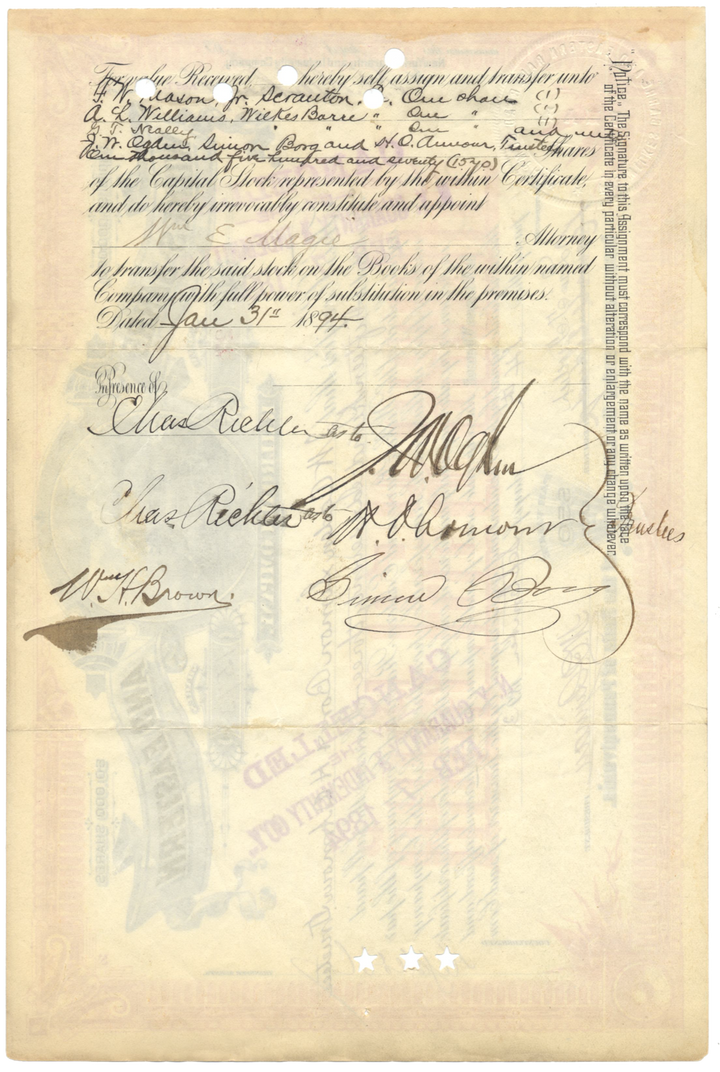 For value Received, hereby sell, assign and transfer unto
F. W. Mason, Jr. Scranton, One share (1)
A. L. Williams, Wilkes Barre " One " (1)
" " One " (1) and
J. W. Ogden, Simon Borg and H. O. Armour, Trustees Shares
One thousand five hundred and seventy (1570)
of the Capital Stock represented by the within Certificate,
and do hereby irrevocably constitute and appoint
Wm E Magie Attorney
to transfer the said stock on the Books of the within named
Company with full power of substitution in the premises.
Dated Jan 31st 1894.
In Presence of
Chas Richter as to J. W. Ogden
Chas. Richter as to H. O. Armour Trustees
Wm H. Brown. Simon Borg
"Notice." The Signature to this Assignment must correspond with the name as written upon the face
of the Certificate in every particular without alteration or enlargement or any change whatever.
CANCELLED